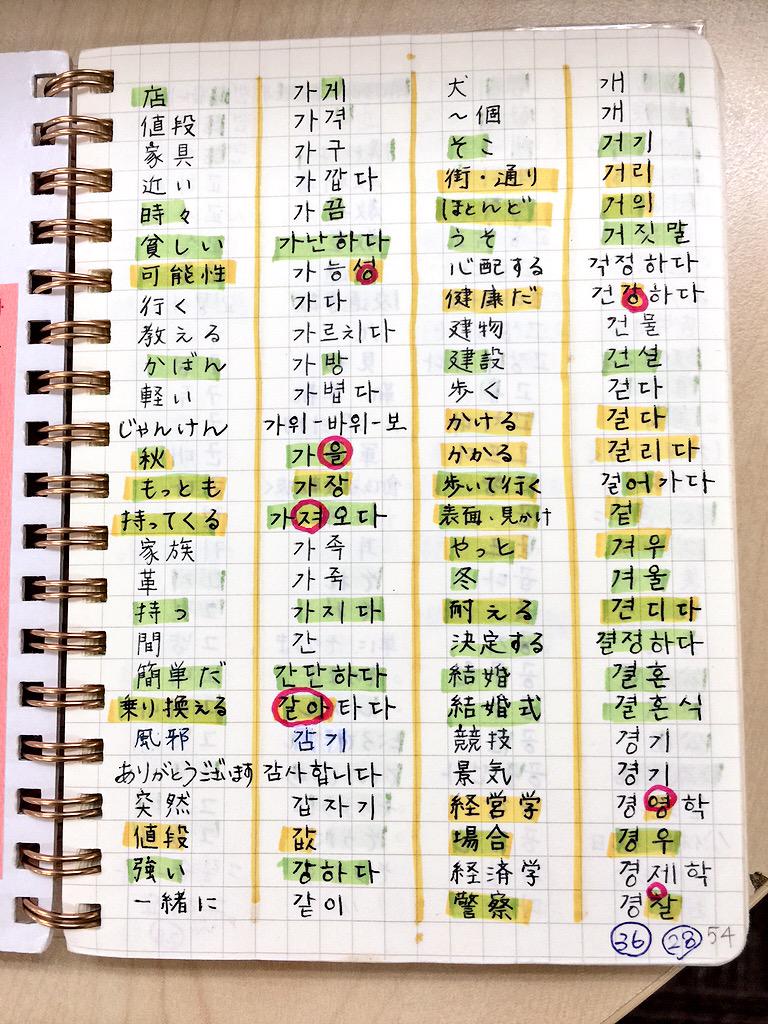 店 가게 犬 개
値段 가격 ～個 개
家具 가구 そこ 거기
近い 가깝다 街・通り 거리
時々 가끔 ほとんど 거의
貧しい 가난하다 うそ 거짓말
可能性 가능성 心配する 걱정하다
行く 가다 健康だ 건강하다
教える 가르치다 建物 건물
かばん 가방 建設 건설
軽い 가볍다 歩く 걷다
じゃんけん 가위-바위-보 かける 걸다
秋 가을 かかる 걸리다
もっとも 가장 歩いて行く 걸어가다
持ってくる 가져오다 表面、見かけ 겉
家族 가족 やっと 겨우
革 가죽 冬 겨울
持つ 가지다 耐える 견디다
間 간 決定する 결정하다
簡単だ 간단하다 結婚 결혼
乗り換える 갈아타다 結婚式 결혼식
風邪 감기 競技 경기
ありがとうございます 감사합니다 景気 경기
突然 갑자기 経営学 경영학
値段 값 場合 경우
強い 강하다 経済学 경제학
一緒に 같이 警察 경찰
36 28 54